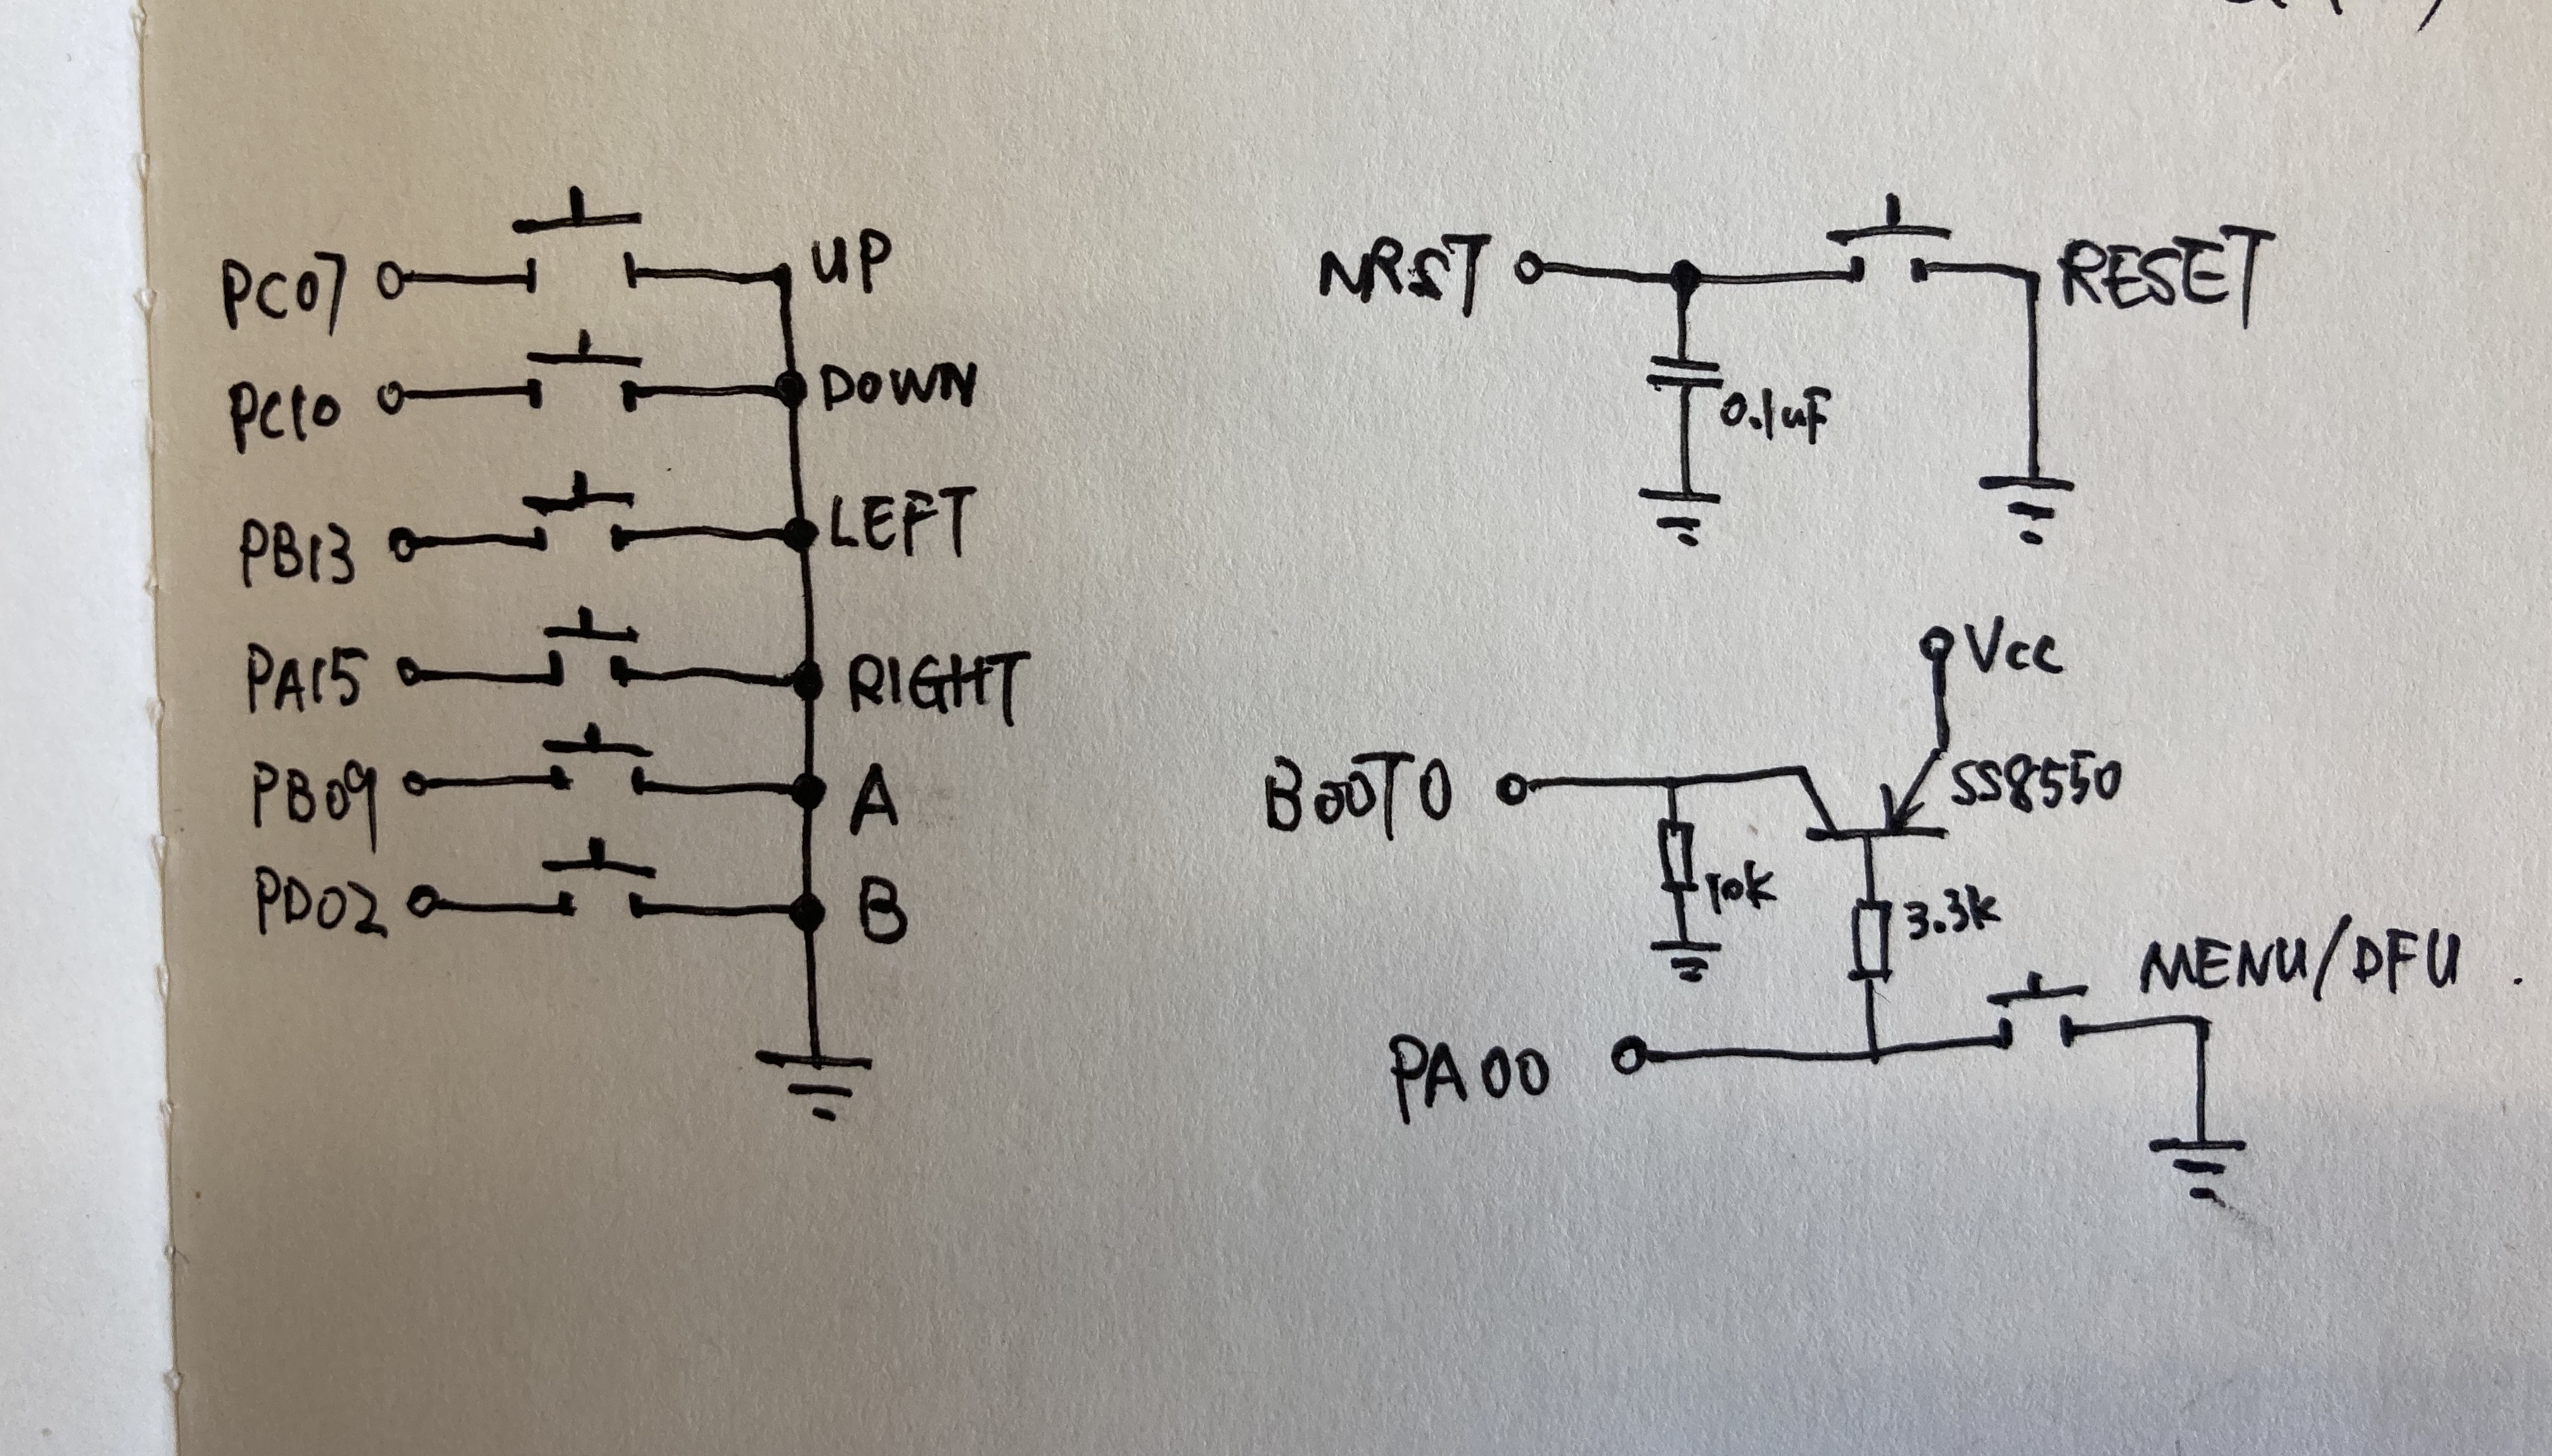 PC07 UP
PC10 DOWN
PB13 LEFT
PA15 RIGHT
PB09 A
PD02 B
NRST RESET
0.1uF
Vcc
BOOT0 SS8550
10K 3.3K
MENU/DFU
PA00